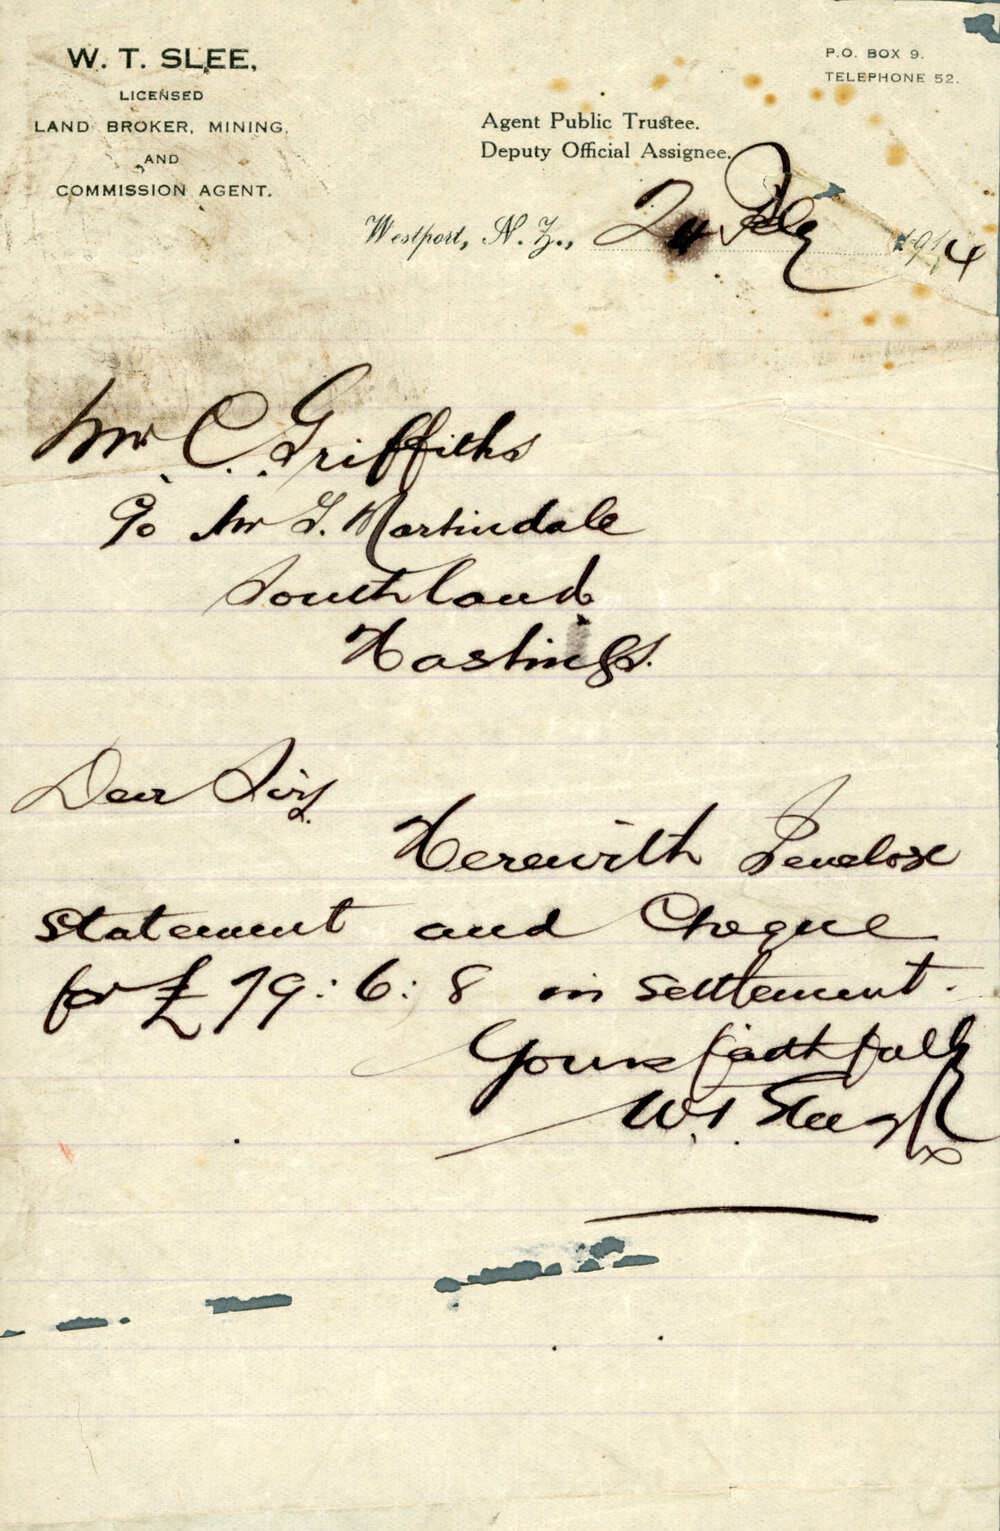 W. T. SLEE,
LICENSED
LAND BROKER, MINING,
AND
COMMISSION AGENT.
P.O. BOX 9.
TELEPHONE 52.
Agent Public Trustee.
Deputy Official Assignee.
Westport, N. Z., 24 1914
Mr C. Griffiths
c/o Mr G. Martindale
Southland
Hastings.
Dear Sir,
Herewith I enclose
statement and Cheque
for £79:6:8 in settlement.
Yours faithfully
W. T. Slee